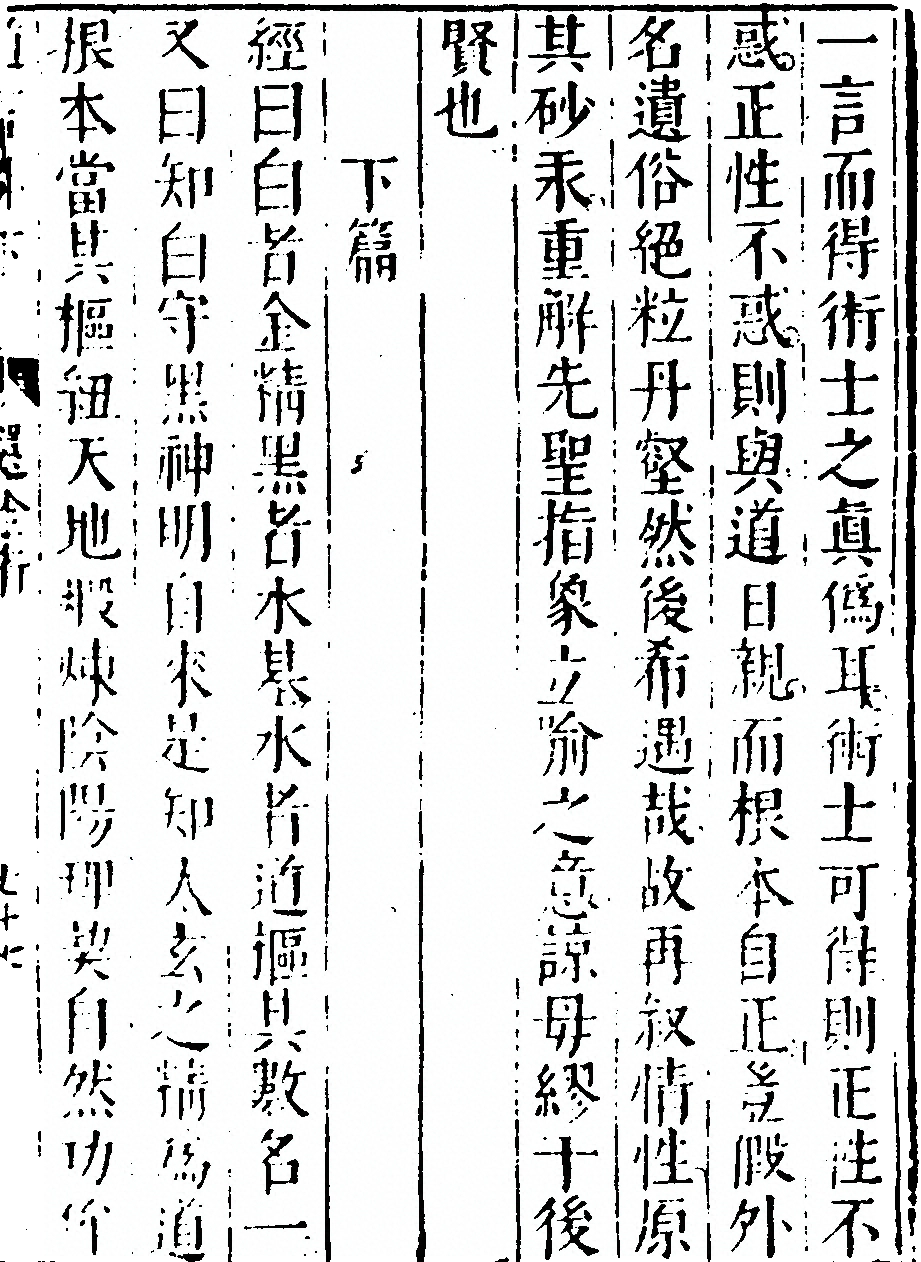 一言而得術士之眞僞耳術士可得則正性不
惑正性不惑則與道日親而根本自正豈假外
名遺俗絕粒丹壑然後希遇哉故再叙情性原
其砂汞重解先聖指象立喻之意諒毋繆十後
賢也
下篇
經曰白者金精黑者水基水者道樞其數名一
又曰知白守黑神明自來是知人玄之精爲道
根本當其樞紐天地煅煉陰陽理契自然功
七十七